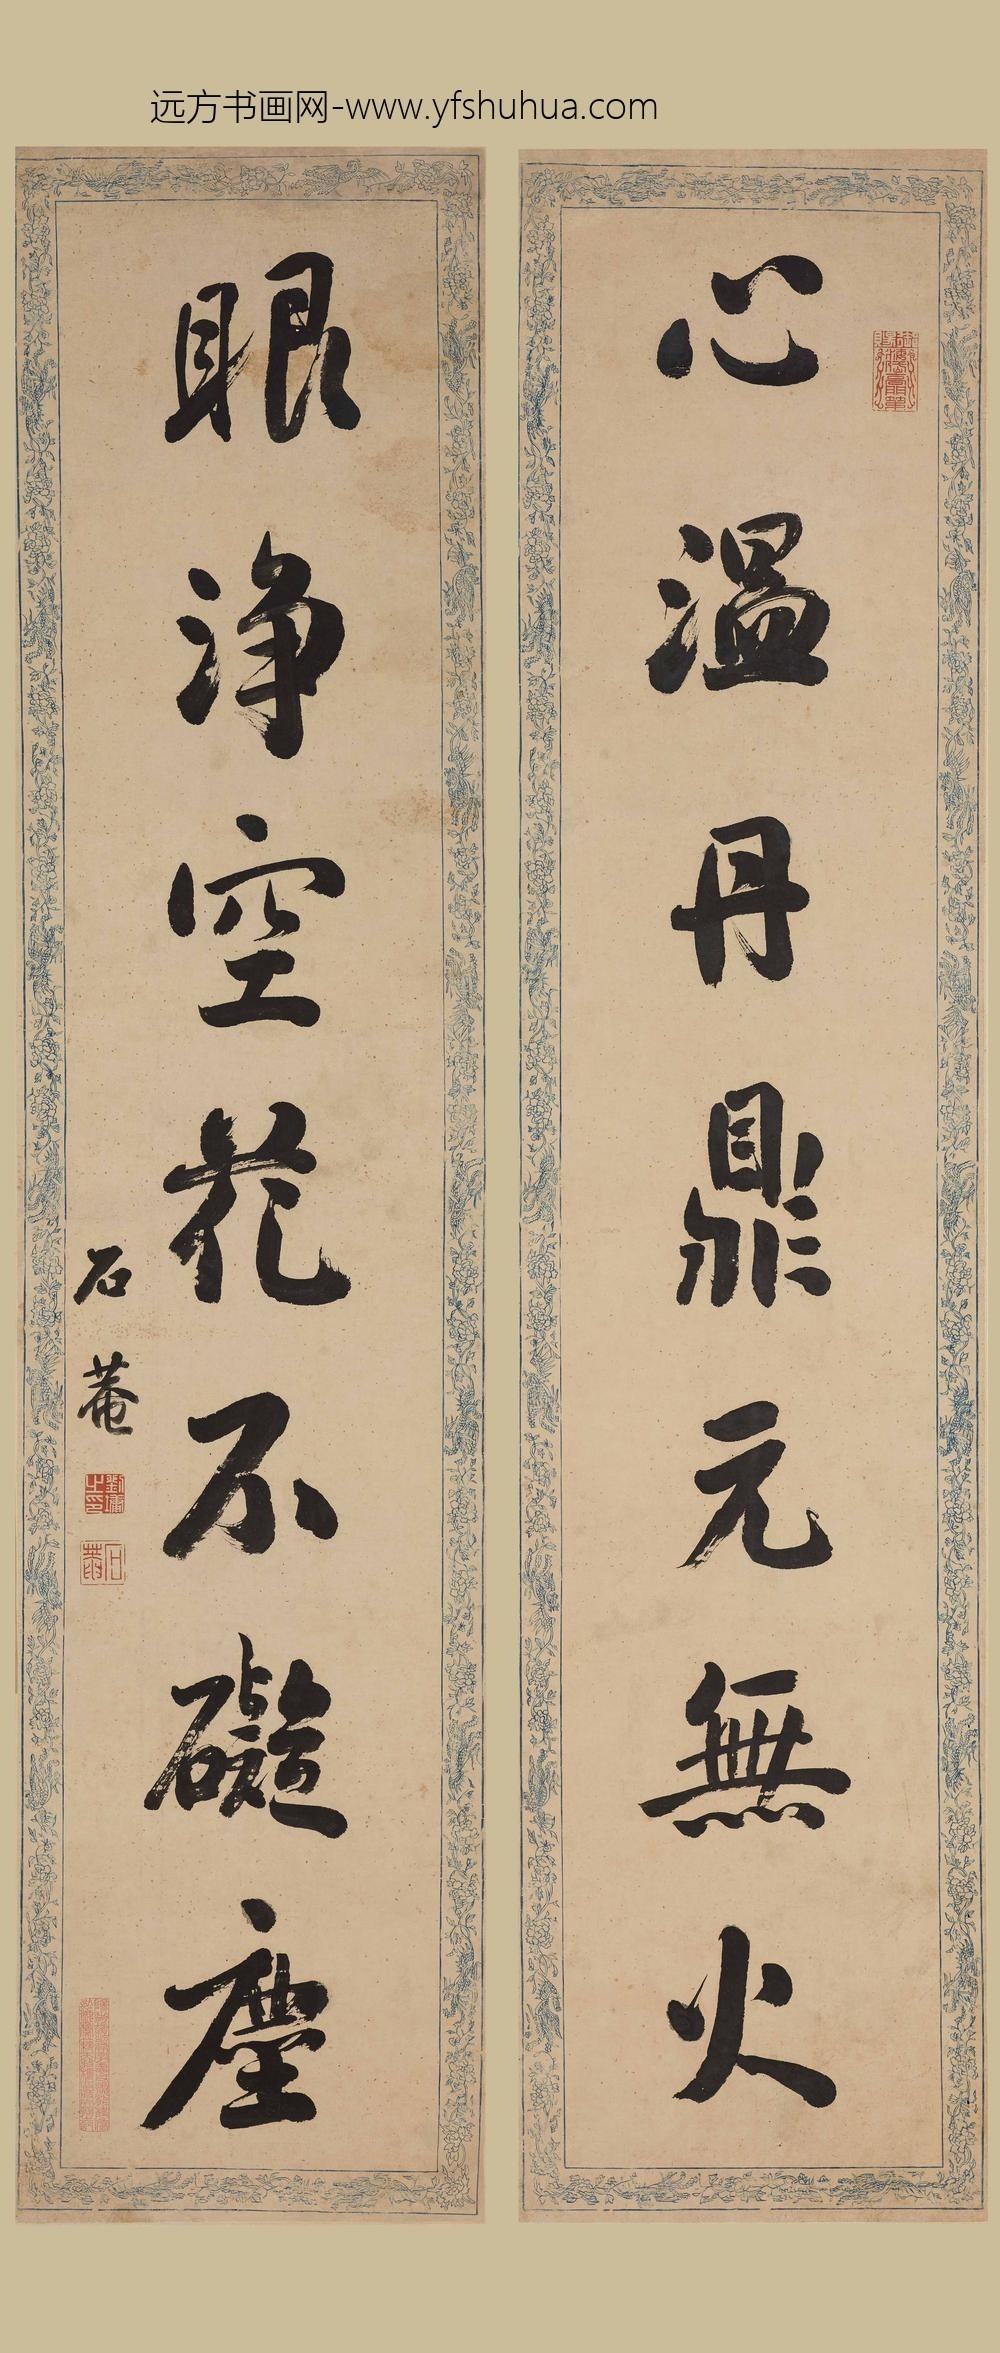 远方书画网-www.yfshuhua.com
心溫丹鼎元無火
眼淨空花不礙塵
石菴
劉墉之印
石菴